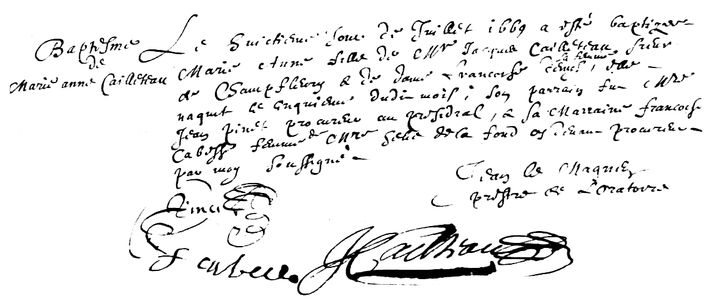 Baptesme
de
Marie anne Cailleteau
Le huictiene Jour de Juillet 1669 a esté baptizee
Marie Anne fille de Mre Jacques Cailleteau, sieur
de Champfleury & de dame francoise sa femme, elle
naquit le cinquiene dudit mois; son parrain fut Mre
Jean pinet procureur au presidial, & sa Marraine francoise
Cabess femme de Mre de la fond procureur
par moy soussigné
Jean le Magnie
prestre de l'oratoire
Pinet
f cabesse
J Cailleteau